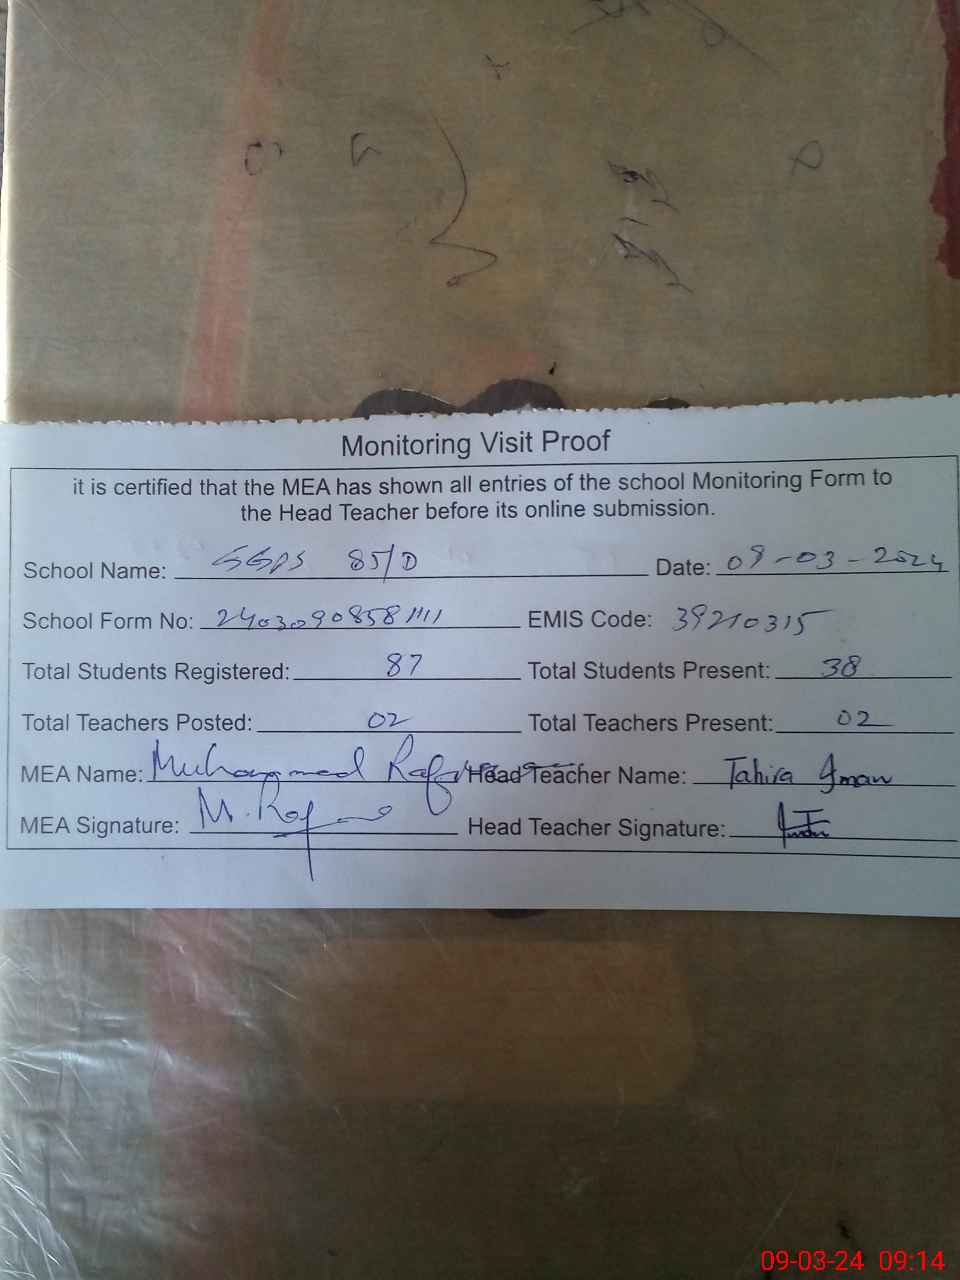 Monitoring Visit Proof
it is certified that the MEA has shown all entries of the school Monitoring Form to
the Head Teacher before its online submission.
School Name: GGPS 85/D Date: 09-03-2024
School Form No: 24030908581111 EMIS Code: 39210315
Total Students Registered: 87 Total Students Present: 38
Total Teachers Posted: 02 Total Teachers Present: 02
MEA Name: Muhammad Head Teacher Name: Tahira Iman
MEA Signature: M. Head Teacher Signature:
09-03-24 09:14